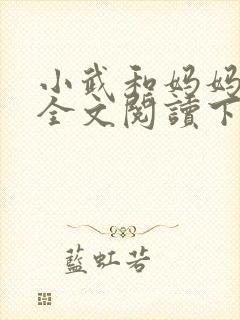 小武和妈妈
全文閱讀下
藍虹若